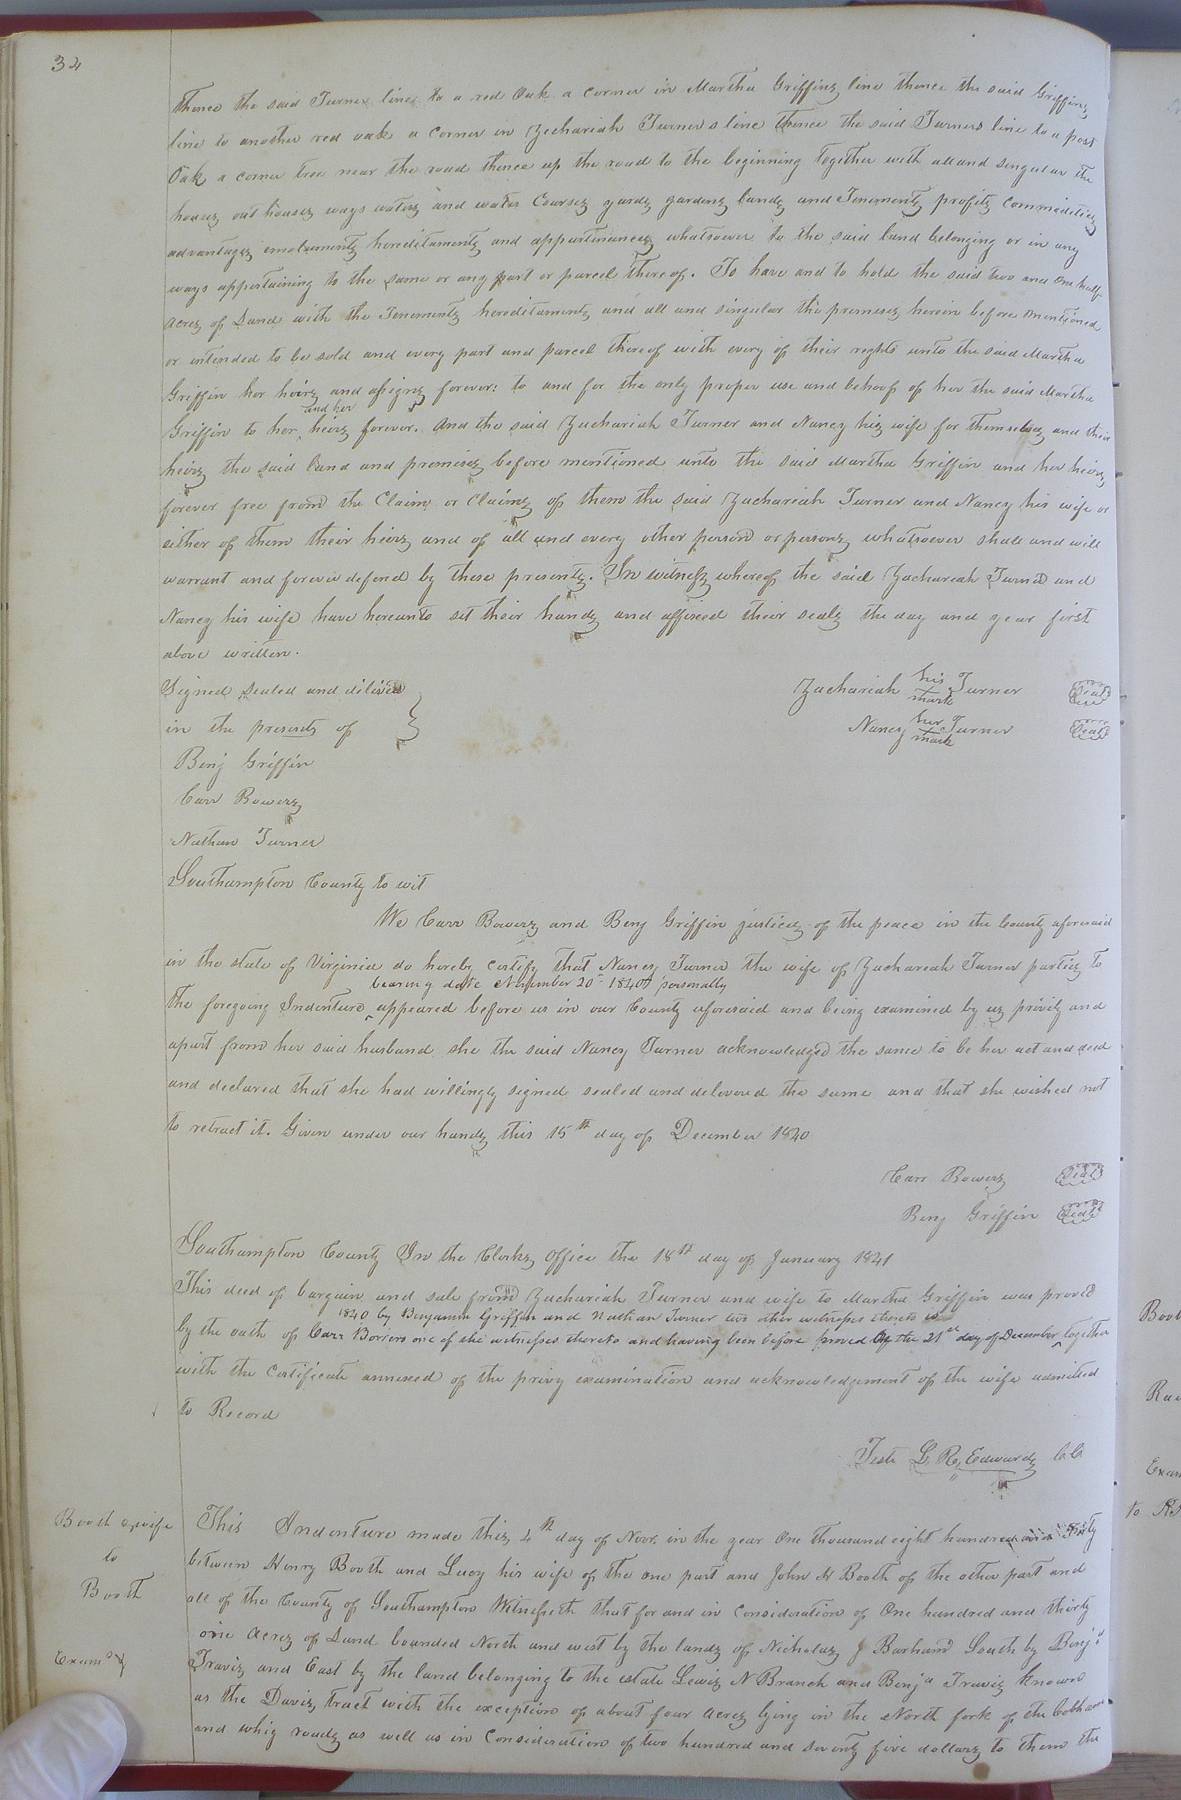 34
thence the said Turners line to a red Oak a corner in Martha Griffins line thence the said Griffins
line to another red oak a corner in Zachariah Turners line thence the said Turners line to a post
Oak a corner tree near the road thence up the road to the beginning together with all and singular the
houses out houses ways waters and water Courses yards gardens lands and Tenements profits commodities
advantages emoluments hereditaments and appurtinances whatsoever to the said land belonging or in any
ways appertaining to the same or any part or parcel thereof. To have and to hold the said two and one half
acres of Land with the Tenements hereditaments and all and singular the premises herein before mentioned
or intended to be sold and every part and parcel thereof with every of their rights unto the said Martha
Griffin her heirs and assigns forever: to and for the only proper use and behoof of her the said Martha
and her
Griffin to her heirs forever. And the said Zachariah Turner and Nancy his wife for themselves and their
heirs the said land and premises before mentioned unto the said Martha Griffin and her heirs
forever free from the Claim or Claims of them the said Zachariah Turner and Nancy his wife or
either of them their heirs and of all and every other person or persons whatsoever shall and will
warrant and forever defend by these presents. In witness whereof the said Zachariah Turner and
Nancy his wife have hereunto set their hands and affixed their seals the day and year first
above written.
Signed Sealed and delivered
in the presents of
Zachariah his mark Turner Seal
Nancy her mark Turner Seal
Benj Griffin
Carr Bowers
Nathan Turner
Southampton County to wit
We Carr Bowers and Benj Griffin justices of the peace in the County aforesaid
in the state of Virginia do hereby certify that Nancy Turner the wife of Zachariah Turner parties to
bearing date November 20th 1840 personally
the foregoing Indenture appeared before us in our County aforesaid and being examined by us privily and
apart from her said husband she the said Nancy Turner acknowledged the same to be her act and deed
and declared that she had willingly signed sealed and delovered the same and that she wished not
to retract it. Given under our hands this 15th day of December 1840
Carr Bowers Seal
Benj Griffin Seal
Southampton County In the Clerks Office the 18th day of January 1841
This deed of bargain and sale from Zachariah Turner and wife to Martha Griffin was proved
1840 by Benjamin Griffin and Nathan Turner two other witnesses thereto is
by the oath of Carr Borrers one of the witnesses thereto and having been before proved the 21st day of December together
with the Certificate annexed of the privy examination and acknowledgement of the wife admitted
to Record
Teste L. R. Edwards CC
Booth & wife
to
Booth
Examd
This Indenture made this 4th day of Novr. in the year One thousand eight hundred and forty
between Henry Booth and Lucy his wife of the one part and John H Booth of the other part and
all of the County of Southampton Witnesseth that for and in consideration of One hundred and thirty
one acres of Land bounded North and west by the lands of Nicholas J Barham South by Benja
Travis and East by the land belonging to the estate Lewis N Branch and Benja Travis known
as the Davis tract with the exception of about four acres lying in the North fork of the
and whig roads as well as in Consideration of two hundred and seventy five dollars to them the